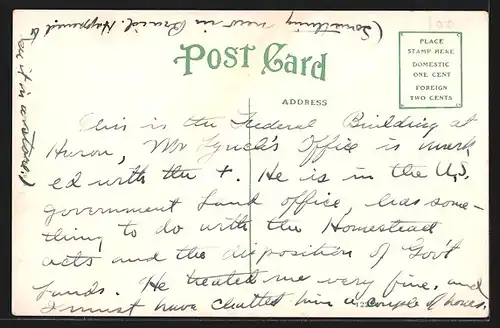 (Something new in Brand. Happened to
see it in a store.)
POST CARD
ADDRESS
PLACE
STAMP HERE
DOMESTIC
ONE CENT
FOREIGN
TWO CENTS
100
This is the Federal Building at
Huron, Mr Lynch's Office is mark
ed with the +. He is in the U.S.
government Land office, has some-
thing to do with the Homestead
acts and the disposition of Gov't
Lands. He treated me very fine, and
I must have chatted him a couple of hours.